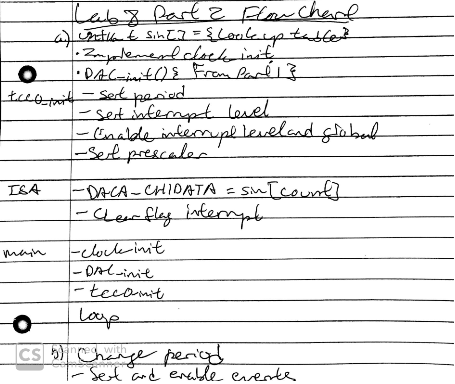 Lab 8 Part 2 Flow Chart
a) sin[] = {Lookup table}
• Implement clock init
• DAC_init() { From Part 1 }
tcc0_init - Set period
- Set interrupt level
- Enable interrupt level and global
- Set prescaler
ISR - DACA_CH1DATA = sin[count]
- Clear flag interrupt
main - clock init
- DAC_init
- tcc0 init
Loop
b) Change period
- Set and enable events
CS Scanned with
CamScanner